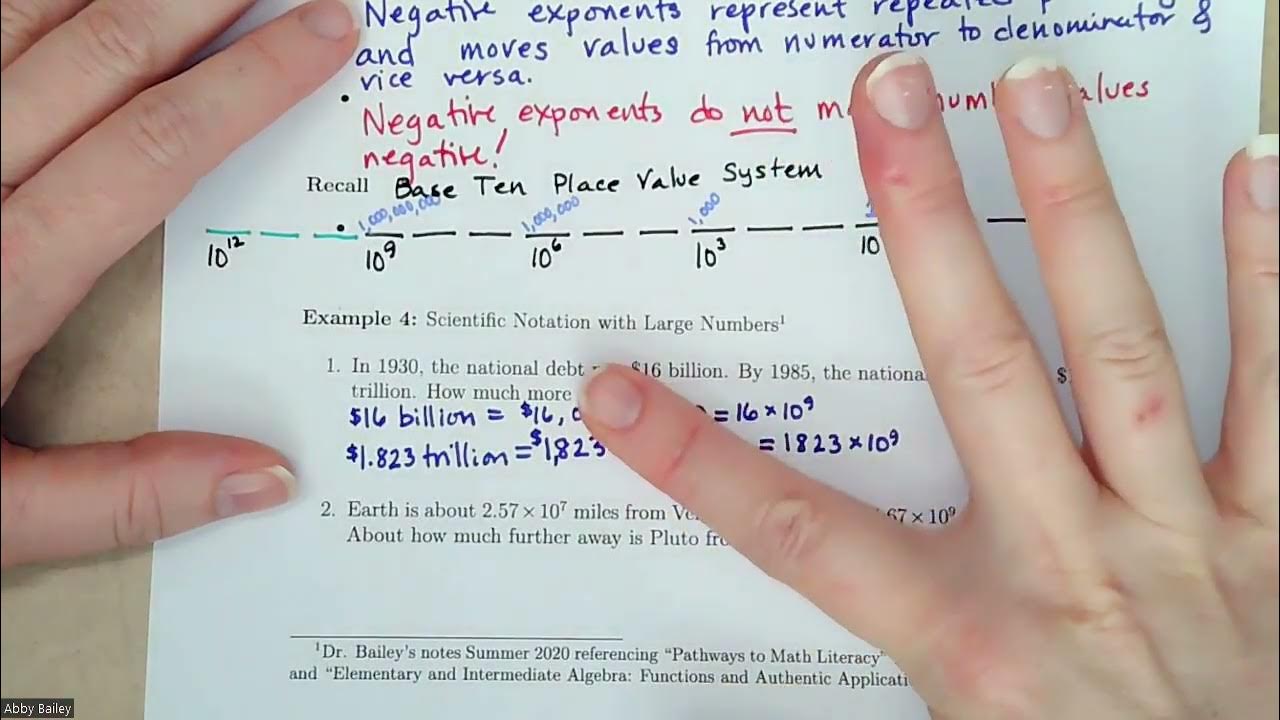 Negative exponents represent
and moves values from numerator to denominator &
vice versa.
• Negative exponents do not
negative!
Recall Base Ten Place Value System
1,000,000,000 1,000,000 1,000
10¹² 10⁹ 10⁶ 10³ 10
Example 4: Scientific Notation with Large Numbers¹
1. In 1930, the national debt $16 billion. By 1985, the
trillion. How much more
$16 billion = $16, = 16 × 10⁹
$1.823 trillion = $1,823 = 1823 × 10⁹
2. Earth is about 2.57 × 10⁷ miles from 67 × 10⁹
About how much further away is Pluto
¹Dr. Bailey's notes Summer 2020 referencing "Pathways to Math Literacy"
and "Elementary and Intermediate Algebra: Functions and Authentic
Abby Bailey